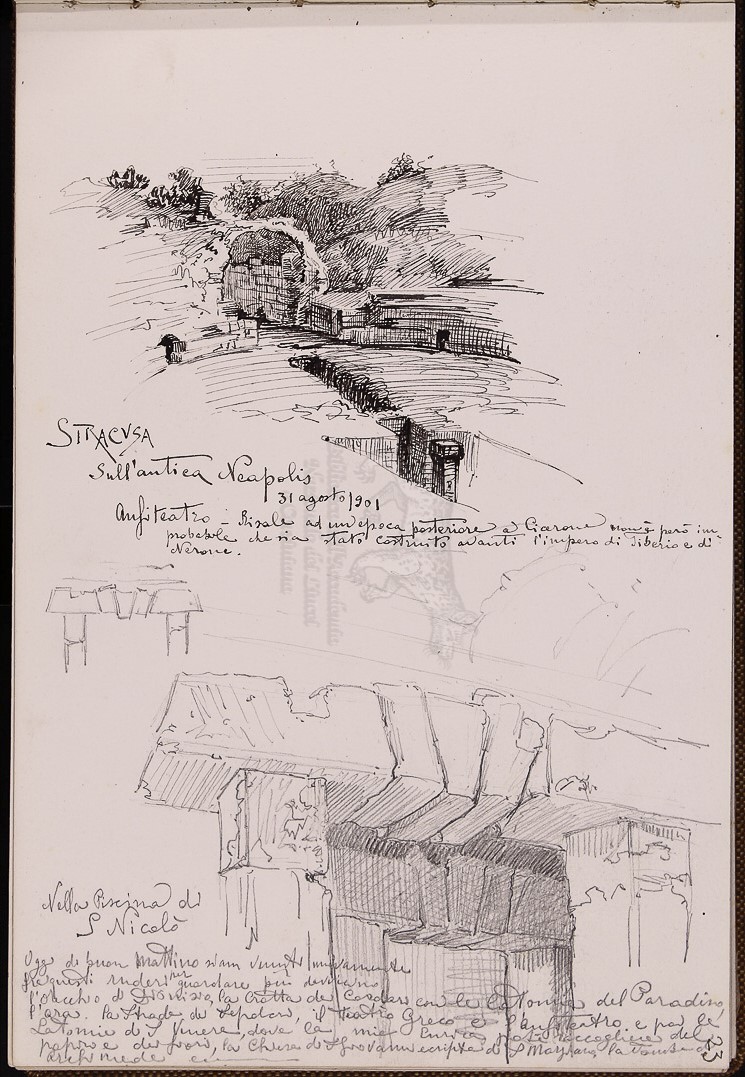 SIRACVSA
Sull'antica Neapolis
31 agosto 1901
Anfiteatro - Risale ad un'epoca posteriore a non è però im
probabile che sia stato costruito avanti l'impero di Tiberio e di
Nerone.
Nella Piscina di
S Nicolò
Oggi di buon mattino siam venuti nuovamente
fra questi ruderi per guardare più da vicino
l'orecchio di Dionisio, la Grotta dei Cordari con le Latomie del Paradiso,
l'ara. la strada de Sepolcri, il teatro Greco e l'anfiteatro e poi le
Latomie di S Venera, dove la mia Enrica potè raccogliere del
papiro e dei fiori, la Chiesa di S Giovanni cripta di S Marziano la Tomba di
Archimede
23